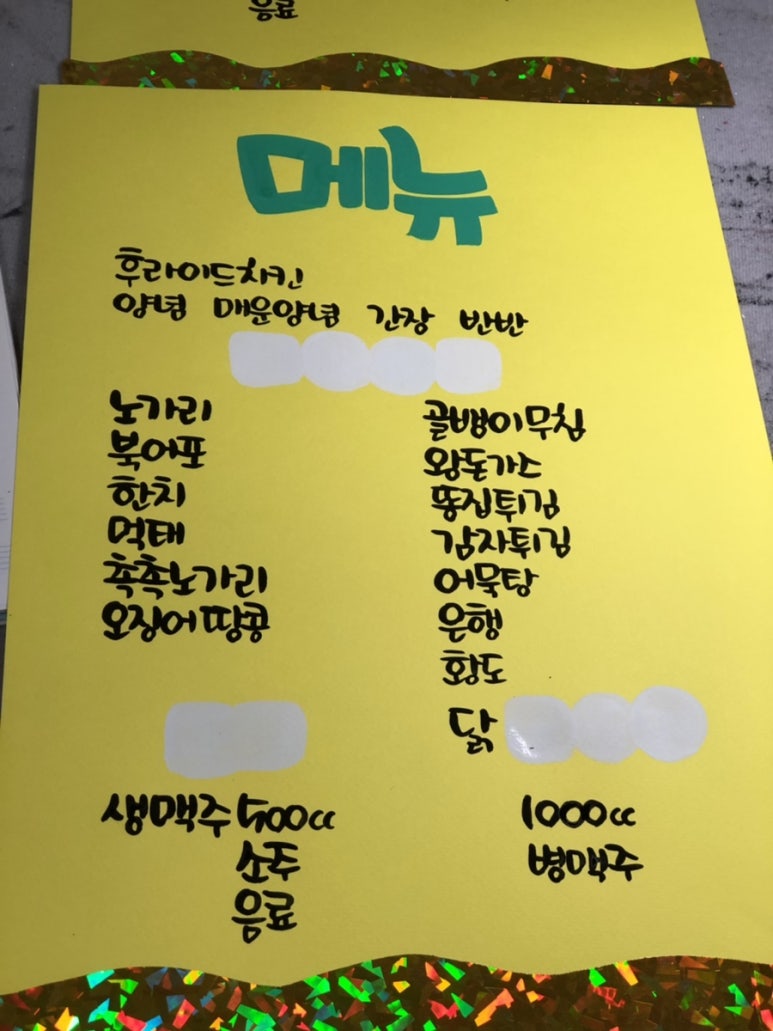 음료
메뉴
후라이드치킨
양념 매운양념 간장 반반
노가리
북어포
한치
먹태
촉촉노가리
오징어땅콩
골뱅이무침
왕돈가스
똥집튀김
감자튀김
어묵탕
은행
황도
닭
생맥주 500cc
1000cc
소주
병맥주
음료